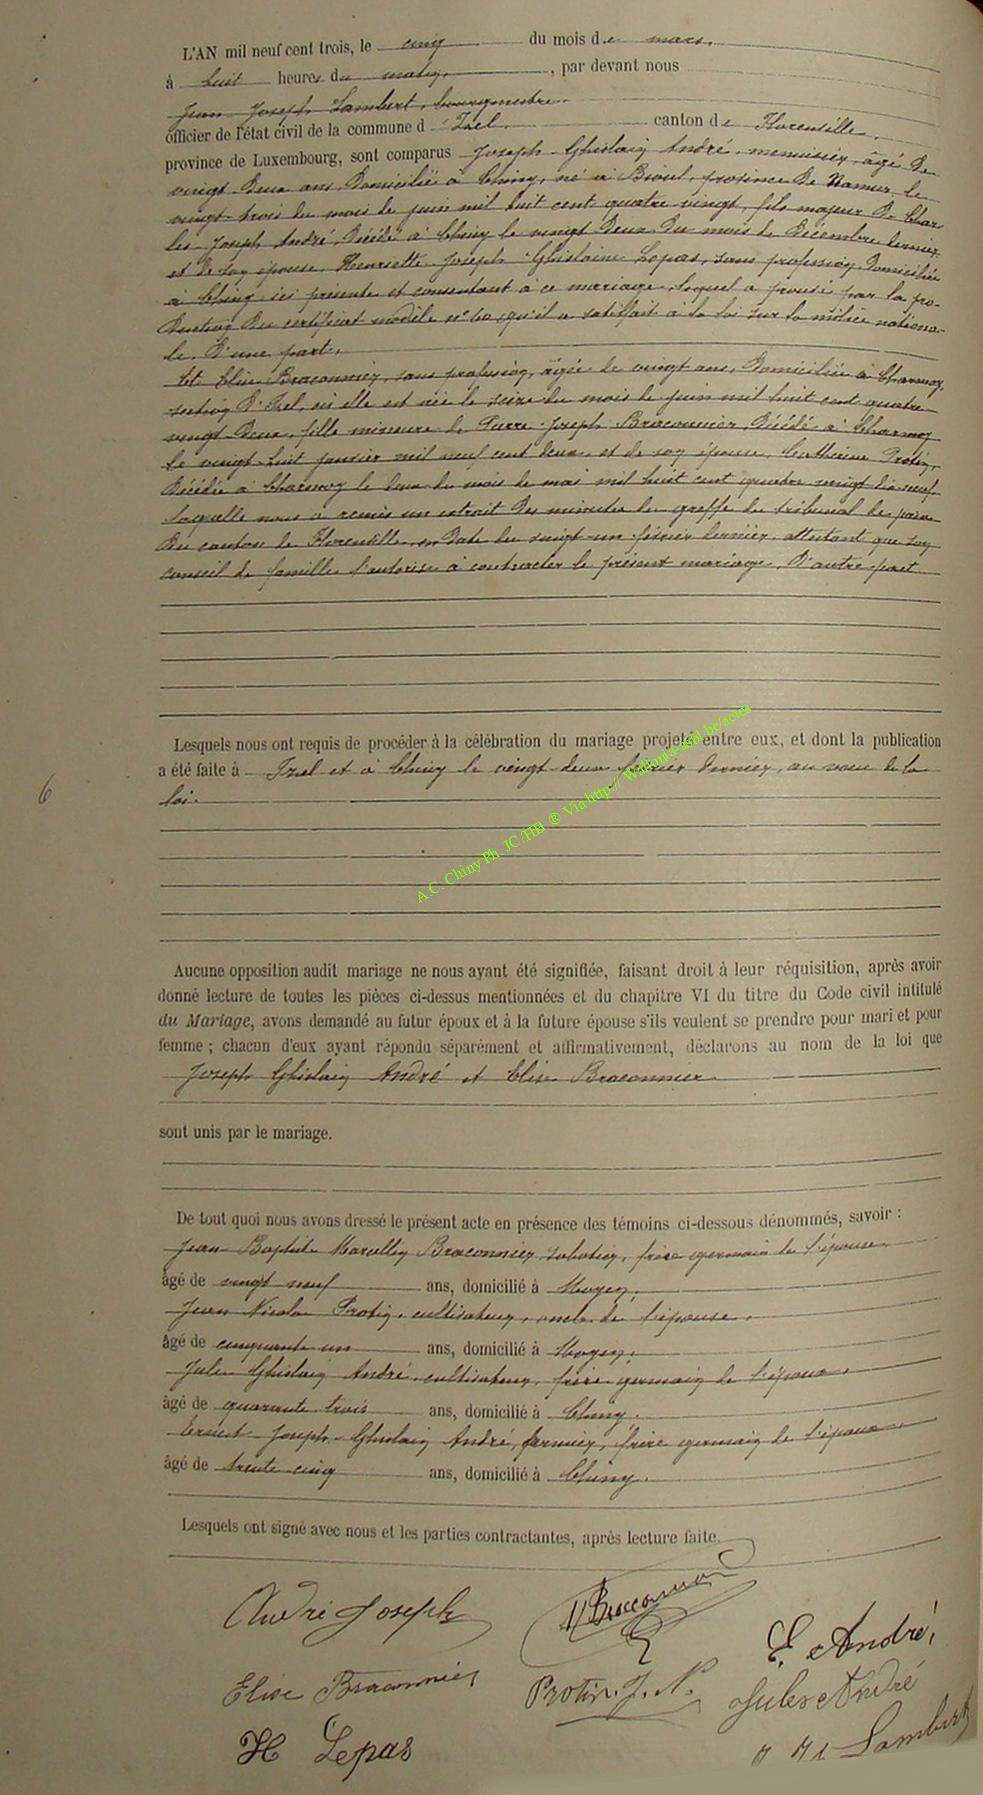 L'AN mil neuf cent trois, le cinq du mois de mars,
à huit heures du matin, par devant nous
Jean Joseph Lambert, bourgmestre
officier de l'état civil de la commune d'Izel, canton de Florenville,
province de Luxembourg, sont comparus Joseph Ghislain André, menuisier, âgé de
vingt deux ans, domicilié à Chiny, né à Bioul, province de Namur, le
vingt-trois du mois de juin mil huit cent quatre vingt, fils majeur de Char
les Joseph André, décédé à Chiny le vingt deux du mois de décembre dernier,
et de son épouse, Henriette Joseph Ghislaine Lepas, sans profession, domiciliée
à Chiny, ici présente et consentant à ce mariage, lequel a prouvé par la pro-
duction du certificat modèle n° 60, qu'il a satisfait à la loi sur la milice nationa-
le. D'une part.
Et Elise Braconnier, sans profession, âgée de vingt ans, domiciliée à Charmoy,
section d'Izel, où elle est née le seize du mois de juin mil huit cent quatre-
vingt deux, fille mineure de Pierre Joseph Braconnier, décédé à Charmoy
le vingt huit janvier mil neuf cent deux et de son épouse, Catherine Protin,
décédée à Charmoy le deux du mois de mai mil huit cent quatre vingt dix neuf,
laquelle nous a remis un extrait des minutes du greffe du tribunal de paix
du canton de Florenville, en date du vingt un février dernier, attestant que son
conseil de famille l'autorise à contracter le présent mariage, D'autre part
Lesquels nous ont requis de procéder à la célébration du mariage projeté entre eux, et dont la publication
a été faite à Izel et à Chiny le vingt deux février dernier, au voeu de la
loi.
6
A.C. Chiny Ph. JC/HB ® Via http:// Wallonia-asbl.be/actes
Aucune opposition audit mariage ne nous ayant été signifiée, faisant droit à leur réquisition, après avoir
donné lecture de toutes les pièces ci-dessus mentionnées et du chapitre VI du titre du Code civil intitulé
du Mariage, avons demandé au futur époux et à la future épouse s'ils veulent se prendre pour mari et pour
femme ; chacun d'eux ayant répondu séparément et affirmativement, déclarons au nom de la loi que
Joseph Ghislain André et Elise Braconnier
sont unis par le mariage.
De tout quoi nous avons dressé le présent acte en présence des témoins ci-dessous dénommés, savoir :
Jean Baptiste Marcellin Braconnier, sabotier, frère germain de l'épouse,
âgé de vingt neuf ans, domicilié à Moyen,
Jean Nicolas Protin, cultivateur, oncle de l'épouse,
âgé de cinquante un ans, domicilié à Moyen,
Jules Ghislain André, cultivateur, frère germain de l'époux,
âgé de quarante trois ans, domicilié à Chiny.
Ernest Joseph Ghislain André, fermier, frère germain de l'époux
âgé de trente cinq ans, domicilié à Chiny.
Lesquels ont signé avec nous et les parties contractantes, après lecture faite.
André Joseph
M Braconnier
E. André,
Elise Braconnier
Protin. J. N.
Jules André
H Lepas
Lambert